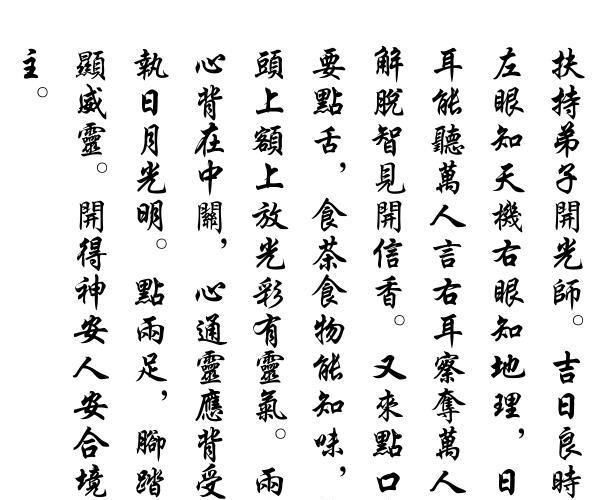 扶持弟子開光師。吉日良時
左眼知天機右眼知地理，日
耳能聽萬人言右耳察奪萬人
解脫智見開信香。又來點口
要點舌，食茶食物能知味，
頭上額上放光彩有靈氣。兩
心背在中關，心通靈應背受
執日月光明。點兩足，腳踏
顯威靈。開得神安人安合境
主。